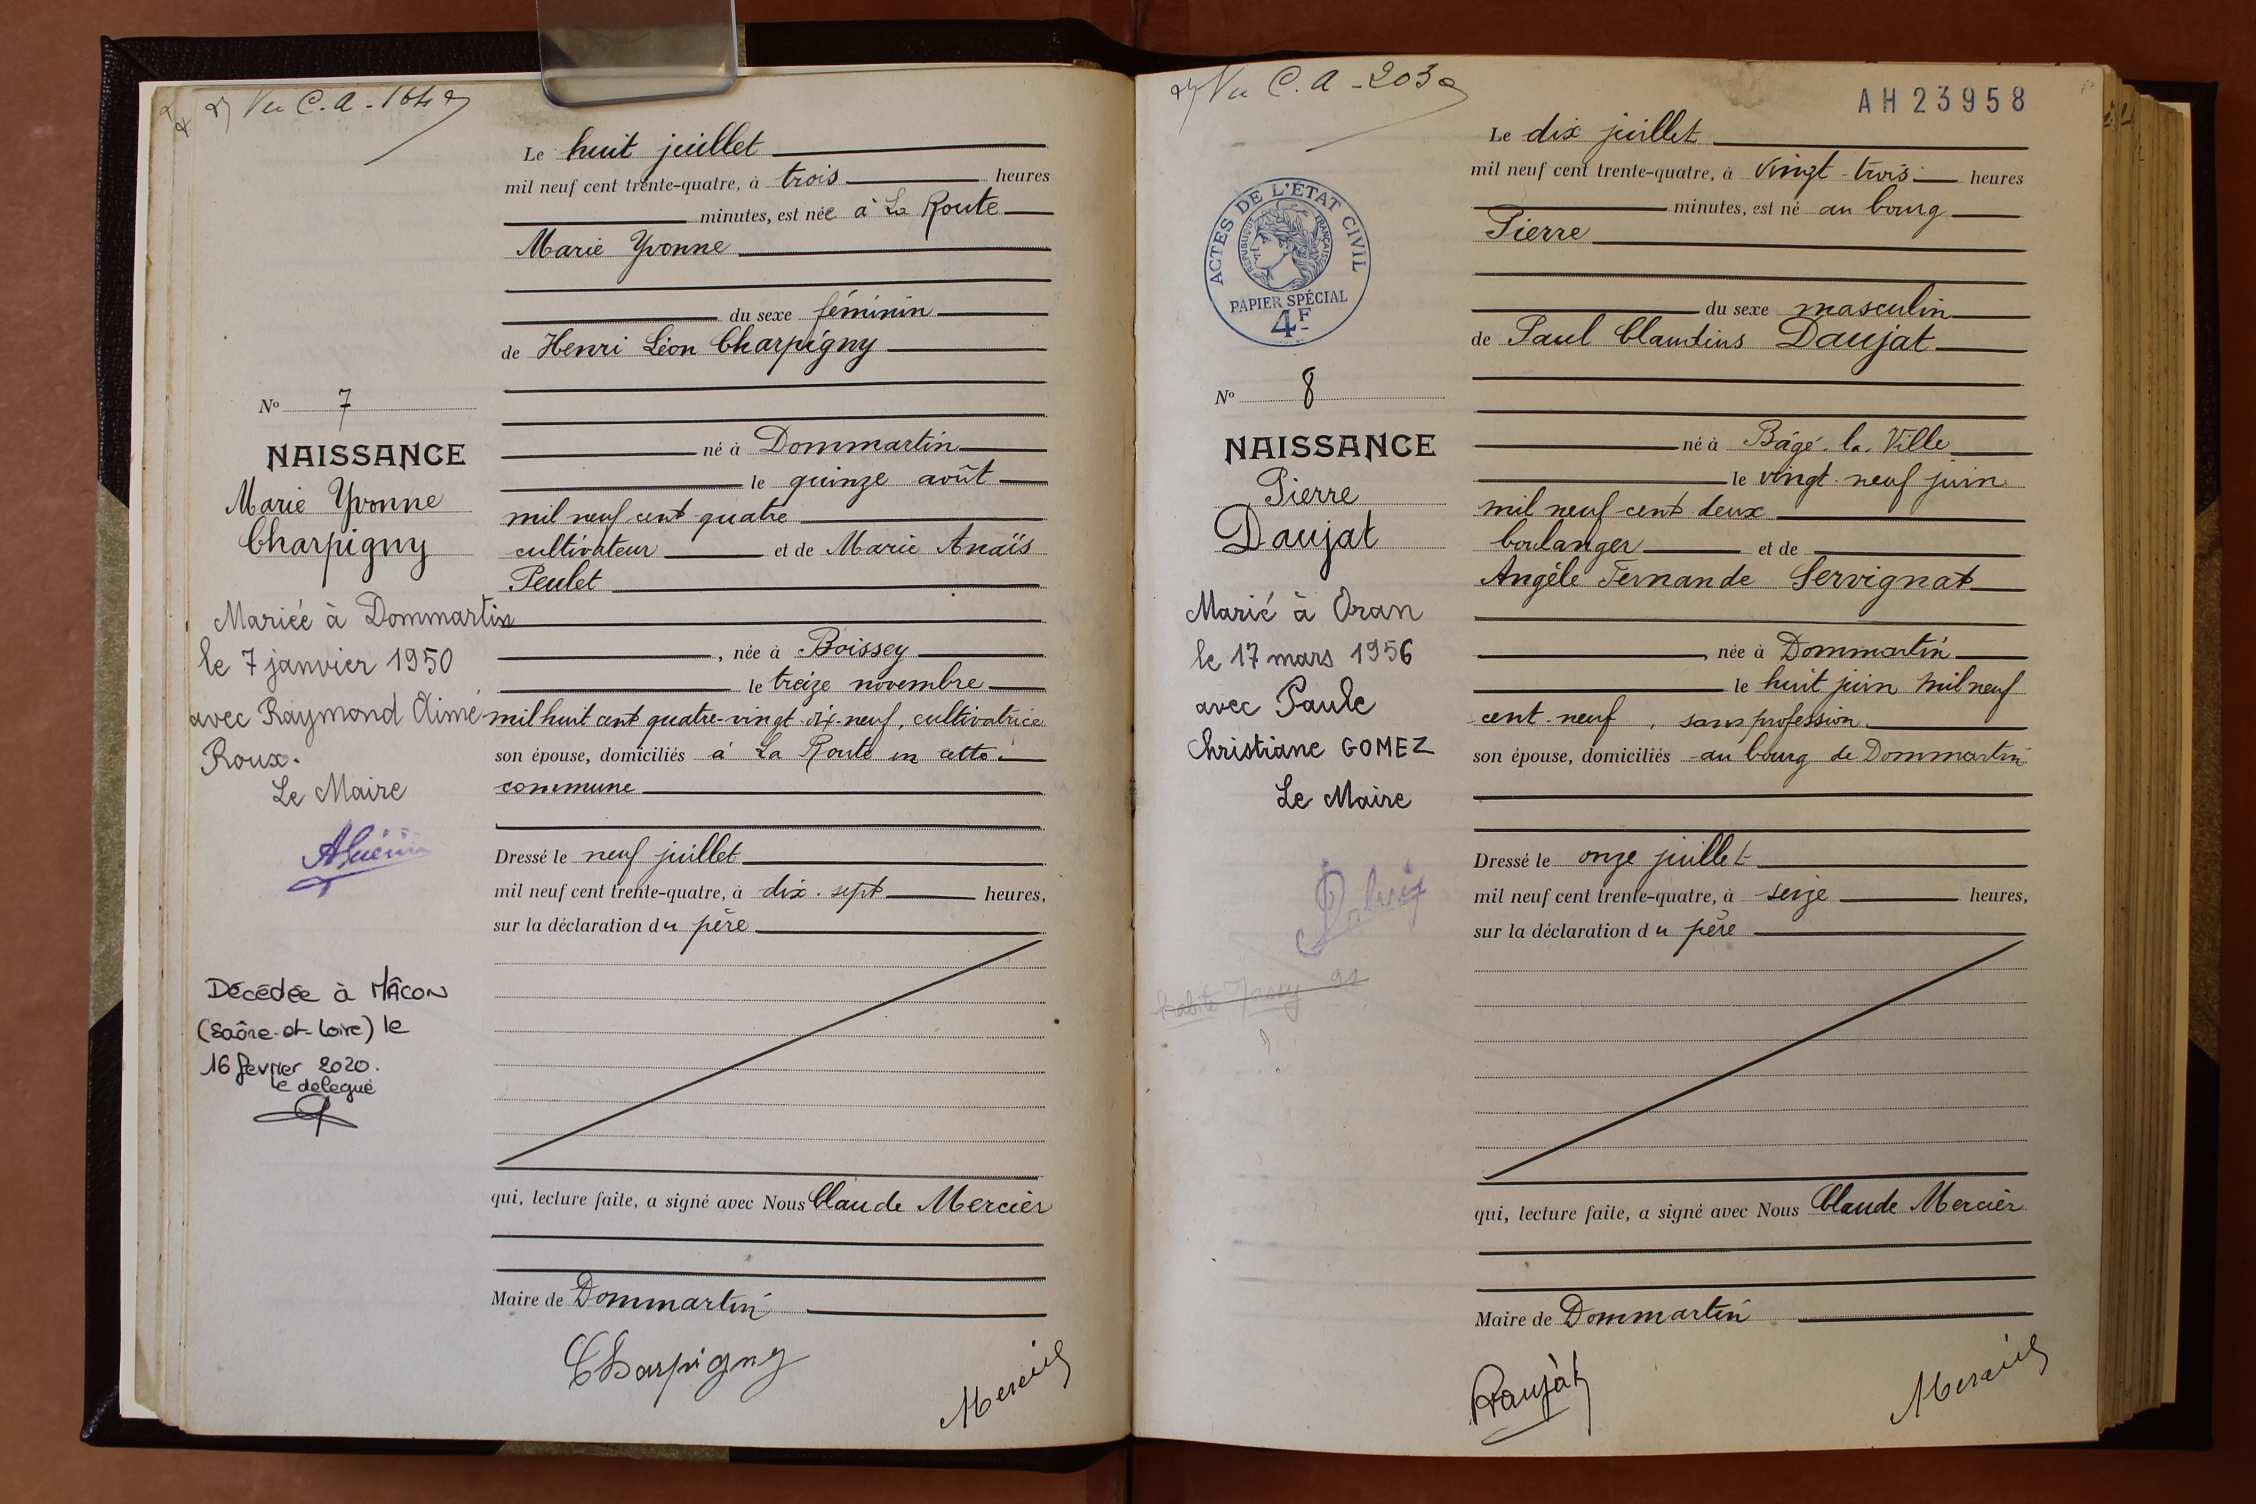 Vu C. A - 164
Le huit juillet
mil neuf cent trente-quatre, à trois heures
minutes, est née à La Route
Marie Yvonne
du sexe féminin
de Henri Léon Charpigny
N° 7
NAISSANCE
Marie Yvonne
Charpigny
Mariée à Dommartin
le 7 janvier 1950
avec Raymond Aimé
Roux.
Le Maire
AGuérin
Décédée à MÂCON
(Saône-et-Loire) le
16 fevrier 2020.
le delegué
né à Dommartin
le quinze août
mil neuf cent quatre
cultivateur et de Marie Anaïs
Peulet
, née à Boissey
le treize novembre
mil huit cent quatre-vingt-dix-neuf, cultivatrice
son épouse, domiciliés à La Route en cette
commune
Dressé le neuf juillet
mil neuf cent trente-quatre, à dix-sept heures,
sur la déclaration du père
qui, lecture faite, a signé avec Nous Claude Mercier
Maire de Dommartin
Charpigny
Mercier
Vu C. A - 203
AH 23958
Le dix juillet
mil neuf cent trente-quatre, à vingt-trois heures
minutes, est né au bourg
Pierre
du sexe masculin
de Paul Claudius Daujat
ACTES DE L'ÉTAT CIVIL
RÉPUBLIQUE FRANÇAISE
PAPIER SPÉCIAL
4F
N° 8
NAISSANCE
Pierre
Daujat
Marié à Oran
le 17 mars 1956
avec Paule
Christiane GOMEZ
Le Maire
né à Bâgé-la-Ville
le vingt-neuf juin
mil neuf cent deux
boulanger et de
Angèle Fernande Servignat
, née à Dommartin
le huit juin mil neuf
cent-neuf, sans profession
son épouse, domiciliés au bourg de Dommartin
Dressé le onze juillet
mil neuf cent trente-quatre, à seize heures,
sur la déclaration du père
qui, lecture faite, a signé avec Nous Claude Mercier
Maire de Dommartin
Daujat
Mercier